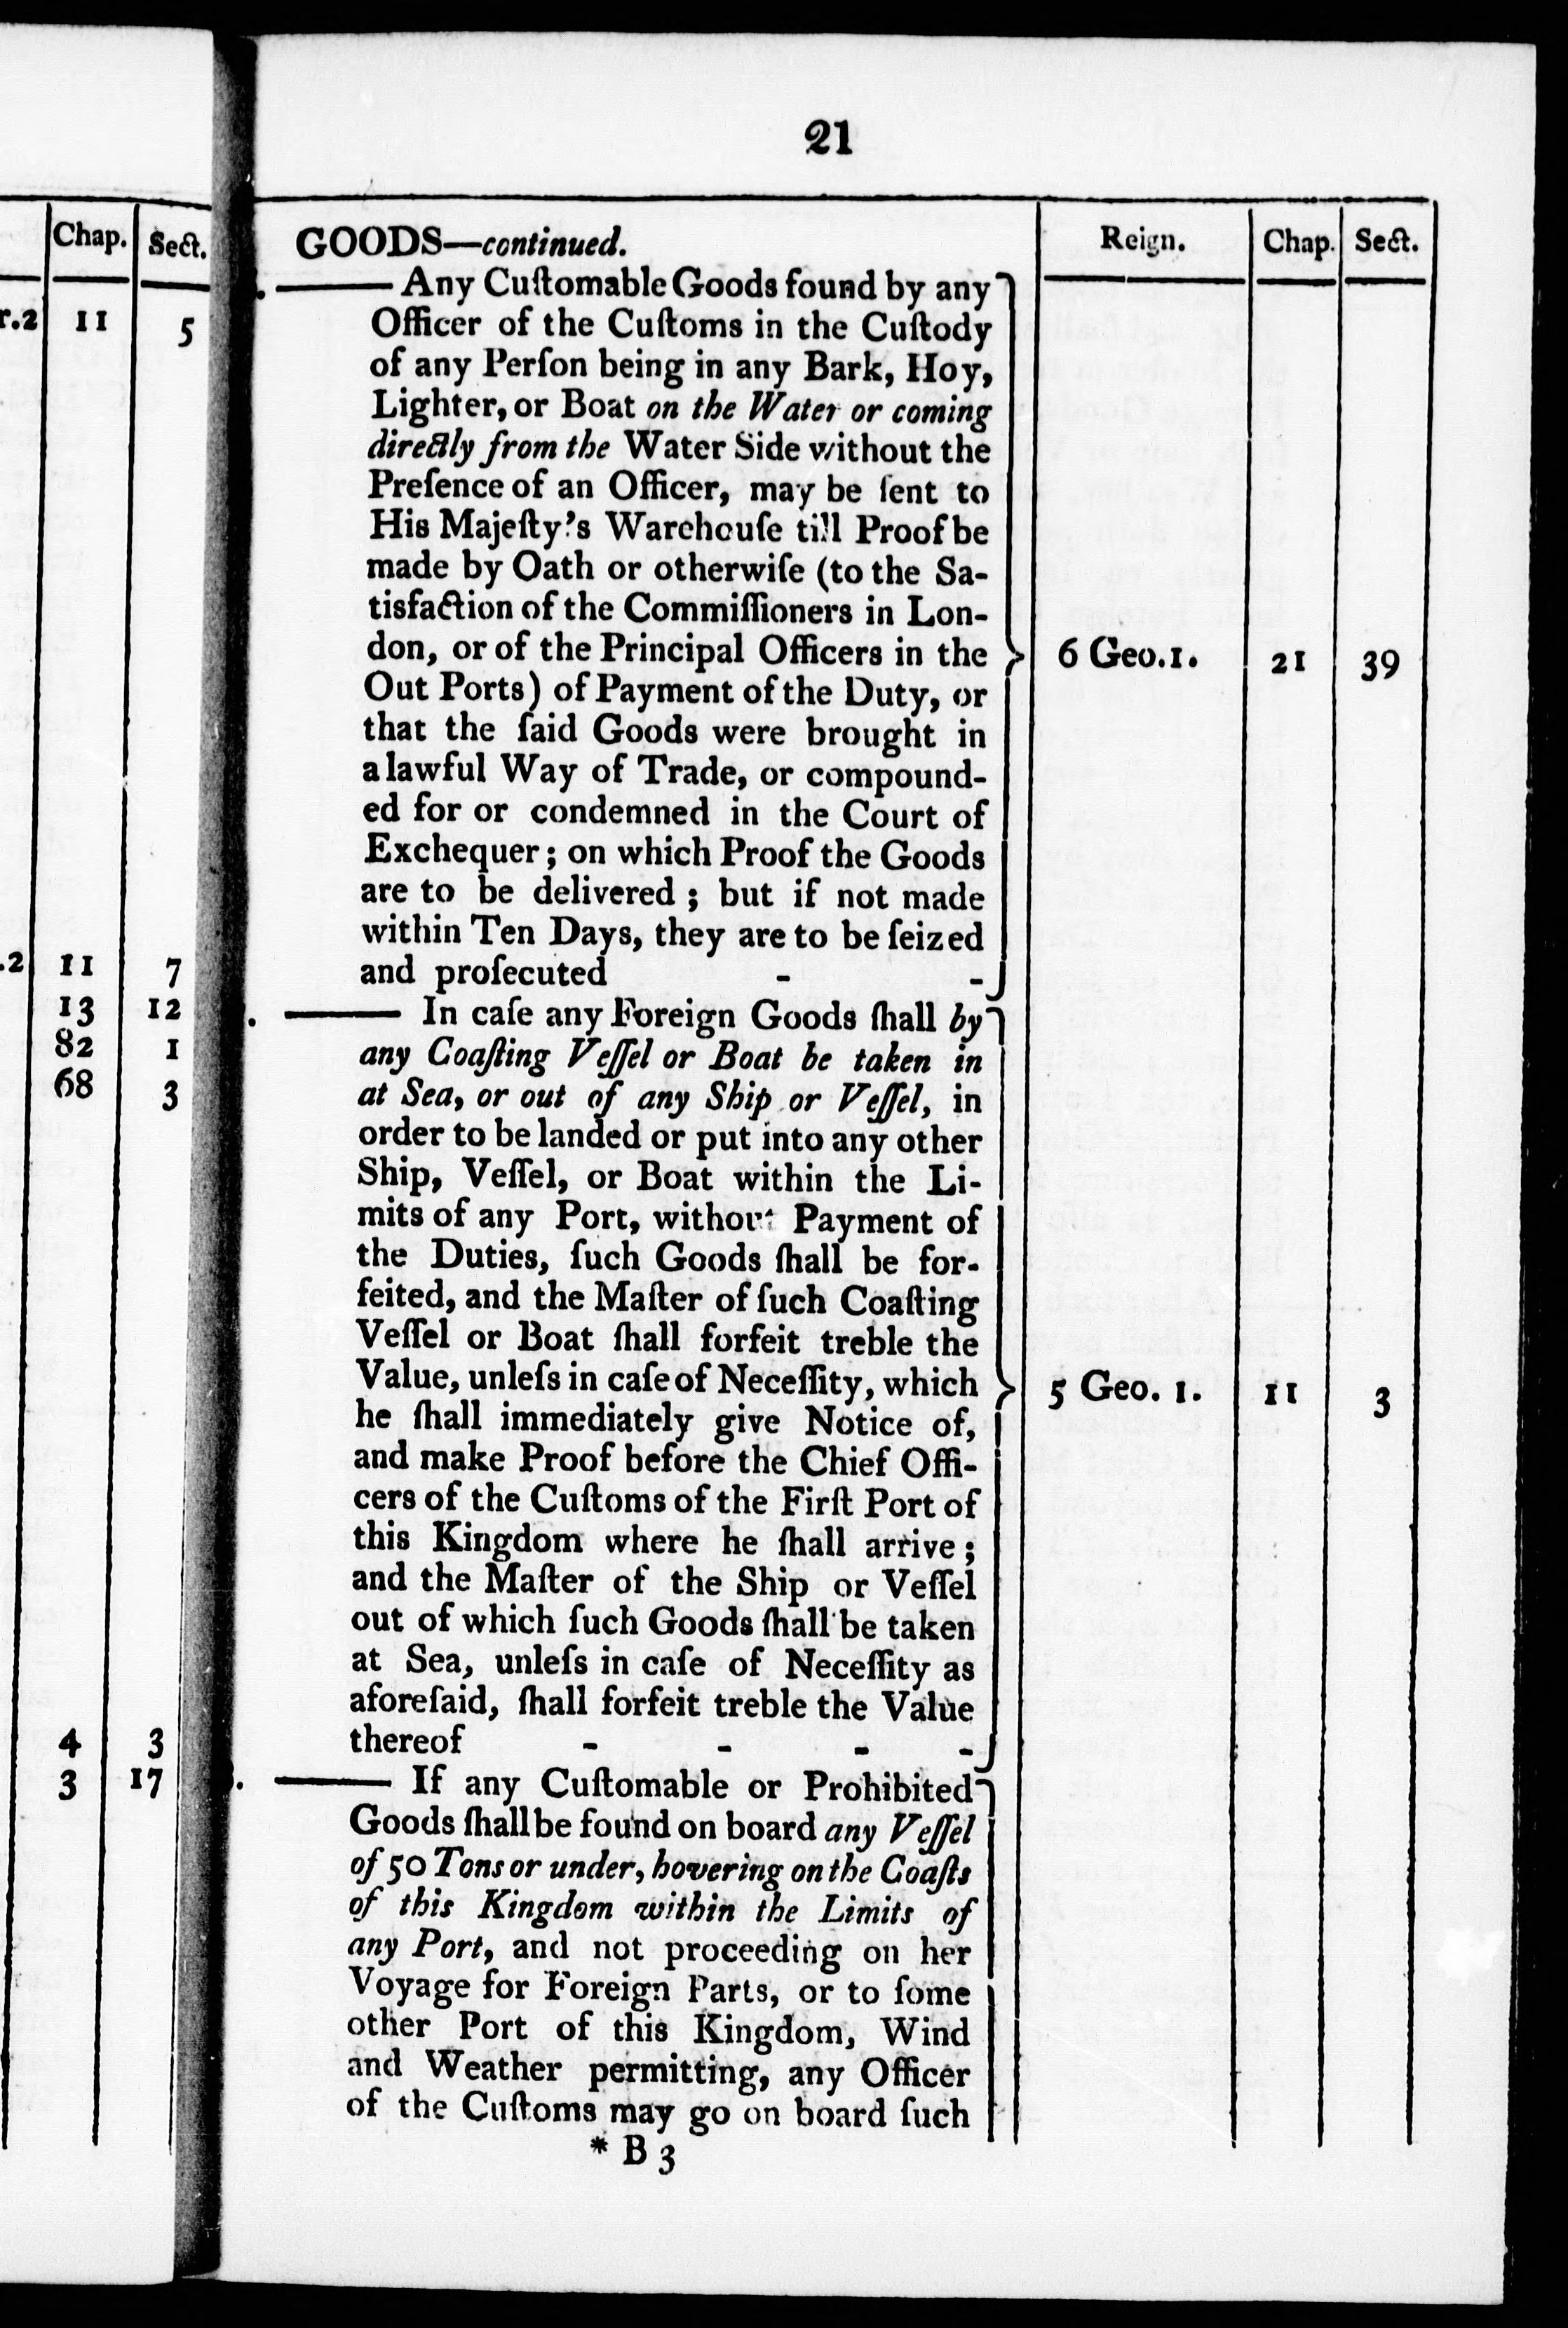 Chap. Sect.
r.2 11 5
.2 11 7
13 12
82 1
68 3
4 3
3 17
21
GOODS—continued. Reign. Chap. Sect.
—— Any Cuſtomable Goods found by any
Officer of the Cuſtoms in the Cuſtody
of any Perſon being in any Bark, Hoy,
Lighter, or Boat on the Water or coming
directly from the Water Side without the
Preſence of an Officer, may be ſent to
His Majeſty's Warehouſe till Proof be
made by Oath or otherwiſe (to the Sa-
tisfaction of the Commiſſioners in Lon-
don, or of the Principal Officers in the 6 Geo. 1. 21 39
Out Ports) of Payment of the Duty, or
that the ſaid Goods were brought in
a lawful Way of Trade, or compound-
ed for or condemned in the Court of
Exchequer; on which Proof the Goods
are to be delivered; but if not made
within Ten Days, they are to be ſeized
and proſecuted - -
—— In caſe any Foreign Goods ſhall by
any Coaſting Veſſel or Boat be taken in
at Sea, or out of any Ship or Veſſel, in
order to be landed or put into any other
Ship, Veſſel, or Boat within the Li-
mits of any Port, without Payment of
the Duties, ſuch Goods ſhall be for-
feited, and the Maſter of ſuch Coaſting
Veſſel or Boat ſhall forfeit treble the
Value, unleſs in caſe of Neceſſity, which 5 Geo. 1. 11 3
he ſhall immediately give Notice of,
and make Proof before the Chief Offi-
cers of the Cuſtoms of the Firſt Port of
this Kingdom where he ſhall arrive;
and the Maſter of the Ship or Veſſel
out of which ſuch Goods ſhall be taken
at Sea, unleſs in caſe of Neceſſity as
aforeſaid, ſhall forfeit treble the Value
thereof - - - -
—— If any Cuſtomable or Prohibited
Goods ſhall be found on board any Veſſel
of 50 Tons or under, hovering on the Coaſts
of this Kingdom within the Limits of
any Port, and not proceeding on her
Voyage for Foreign Parts, or to ſome
other Port of this Kingdom, Wind
and Weather permitting, any Officer
of the Cuſtoms may go on board ſuch
* B 3